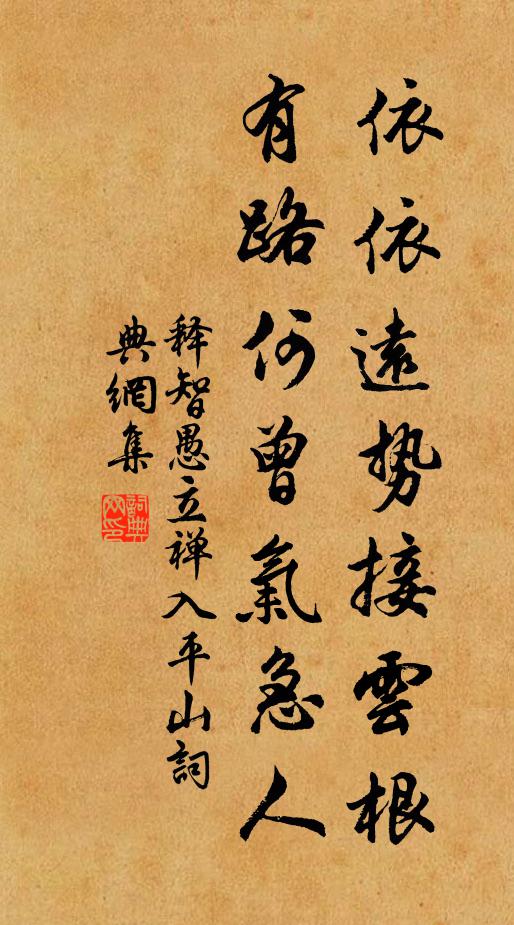 依依遠势接雲根
有路何曾氣急人
释智愚立禅入平山詞
典網集
詞典網印